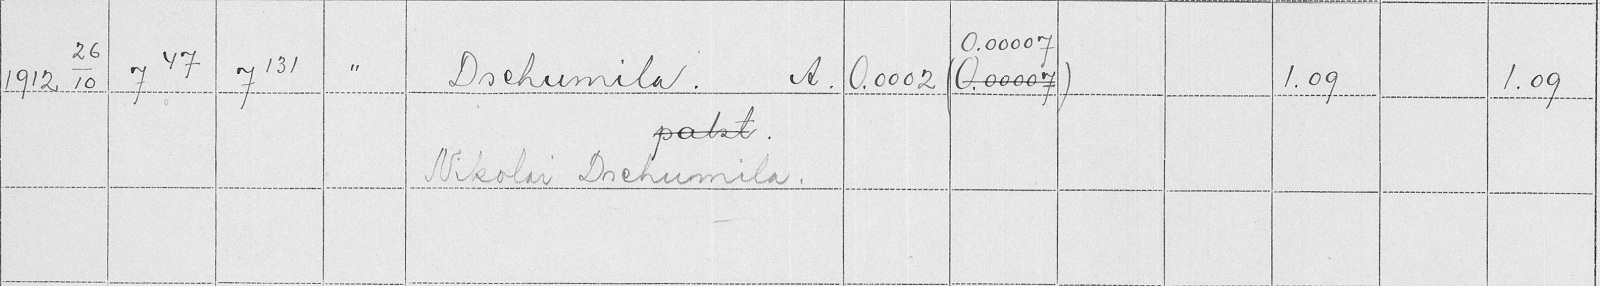 1912 26/10 7 47 7 131 " Dschumila. A. 0.0002 (0.00007) 1.09 1.09
0.00007
palst.
Nikolai Dschumila.